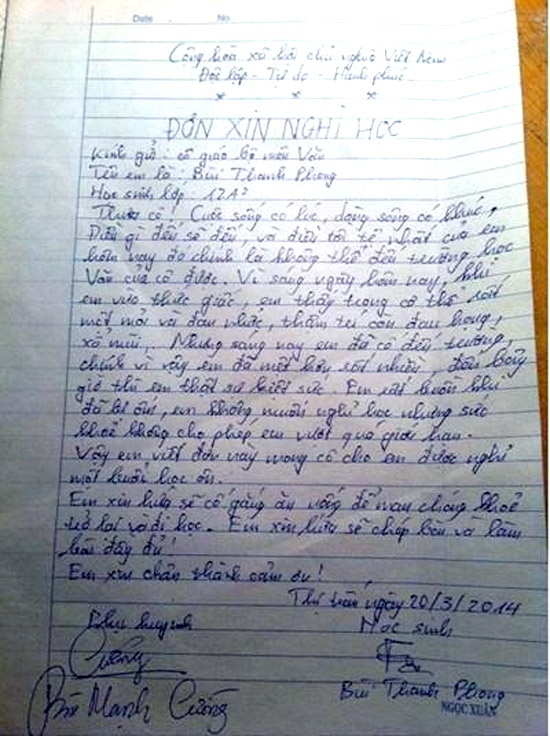 Date No.
Cộng hòa xã hội chủ nghĩa Việt Nam
Độc lập - Tự do - Hạnh phúc
* * *
ĐƠN XIN NGHỈ HỌC
Kính gửi: cô giáo bộ môn Văn
Tên em là: Bùi Thanh Phong
Học sinh lớp: 12A2
Thưa cô! Cuộc sống có lúc, dòng sông có khúc,
Điều gì đến sẽ đến, và điều tồi tệ nhất của em
hôm nay đó chính là không thể đến trường học
Văn của cô được. Vì sáng ngày hôm nay, khi
em vừa thức giấc, em thấy trong cơ thể rất
mệt mỏi và đau nhức, thậm chí còn đau họng,
xổ mũi... Nhưng sáng nay em đã cố đến trường,
chính vì vậy em đã mệt hơn rất nhiều, đến bây
giờ thì em thật sự kiệt sức. Em rất buồn khi
đã bị ốm, em không muốn nghỉ học nhưng sức
khoẻ không cho phép em vượt quá giới hạn.
Vậy em viết đơn này mong cô cho em được nghỉ
một buổi học ôn.
Em xin hứa sẽ cố gắng ăn uống để mau chóng khoẻ
trở lại và đi học. Em xin hứa sẽ chép bài và làm
bài đầy đủ!
Em xin chân thành cảm ơn!
Thị trấn, ngày 20/3/2014
Phụ huynh Học sinh
Cường
Bùi Mạnh Cường Bùi Thanh Phong
NGỌC XUÂN